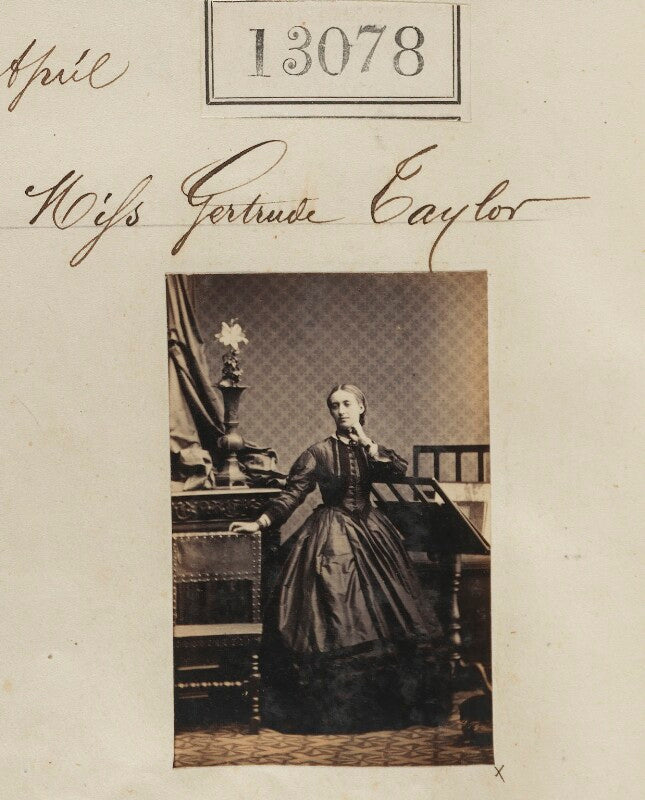 13078
April
Miss Gertrude Taylor
x